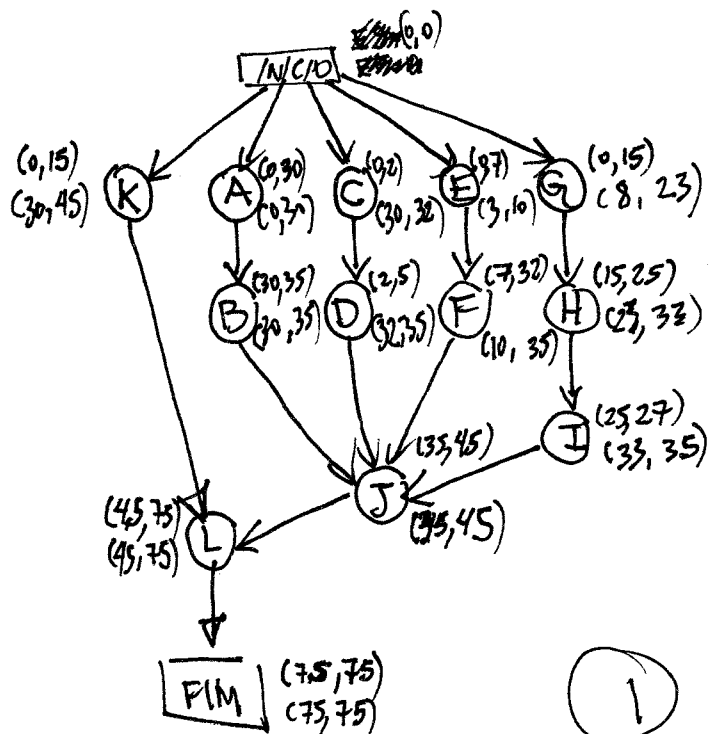 (0,0)
INICIO
(0,15)
(30,45)
K
A
(0,30)
(0,30)
C
(0,2)
(30,32)
E
(0,7)
(3,10)
G
(0,15)
(8,23)
B
(30,35)
(30,35)
D
(2,5)
(32,35)
F
(7,32)
(10,35)
H
(15,25)
(23,33)
I
(25,27)
(33,35)
J
(35,45)
(35,45)
(45,75)
(45,75)
L
FIM
(75,75)
(75,75)
1